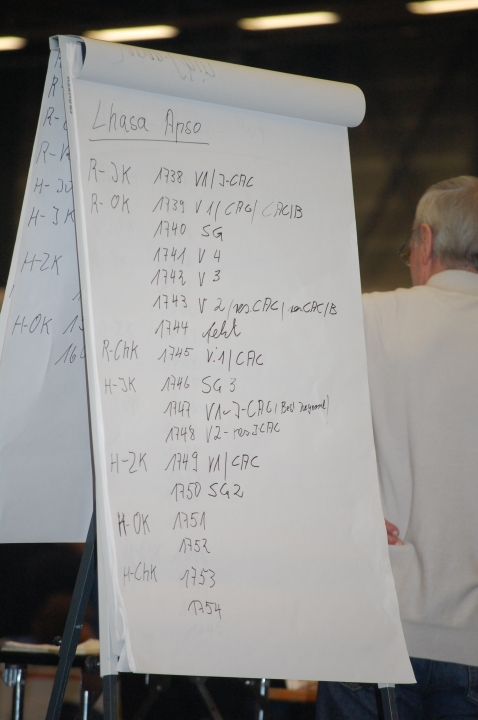 Lhasa Apso
R-JK 1738 V1/J-CAC
R-OK 1739 V1/CAC/CACIB
1740 SG
1741 V4
1742 V3
1743 V2/res CAC/resCAC/B
1744 fehlt
R-ChK 1745 V.1/CAC
H-JK 1746 SG3
1747 V1-J-CAC/
1748 V2-resJCAC
H-ZK 1749 V1/CAC
1750 SG2
H-OK 1751
1752
H-ChK 1753
1754
R-
R-
R-
H-
H-JK
H-ZK
H-OK